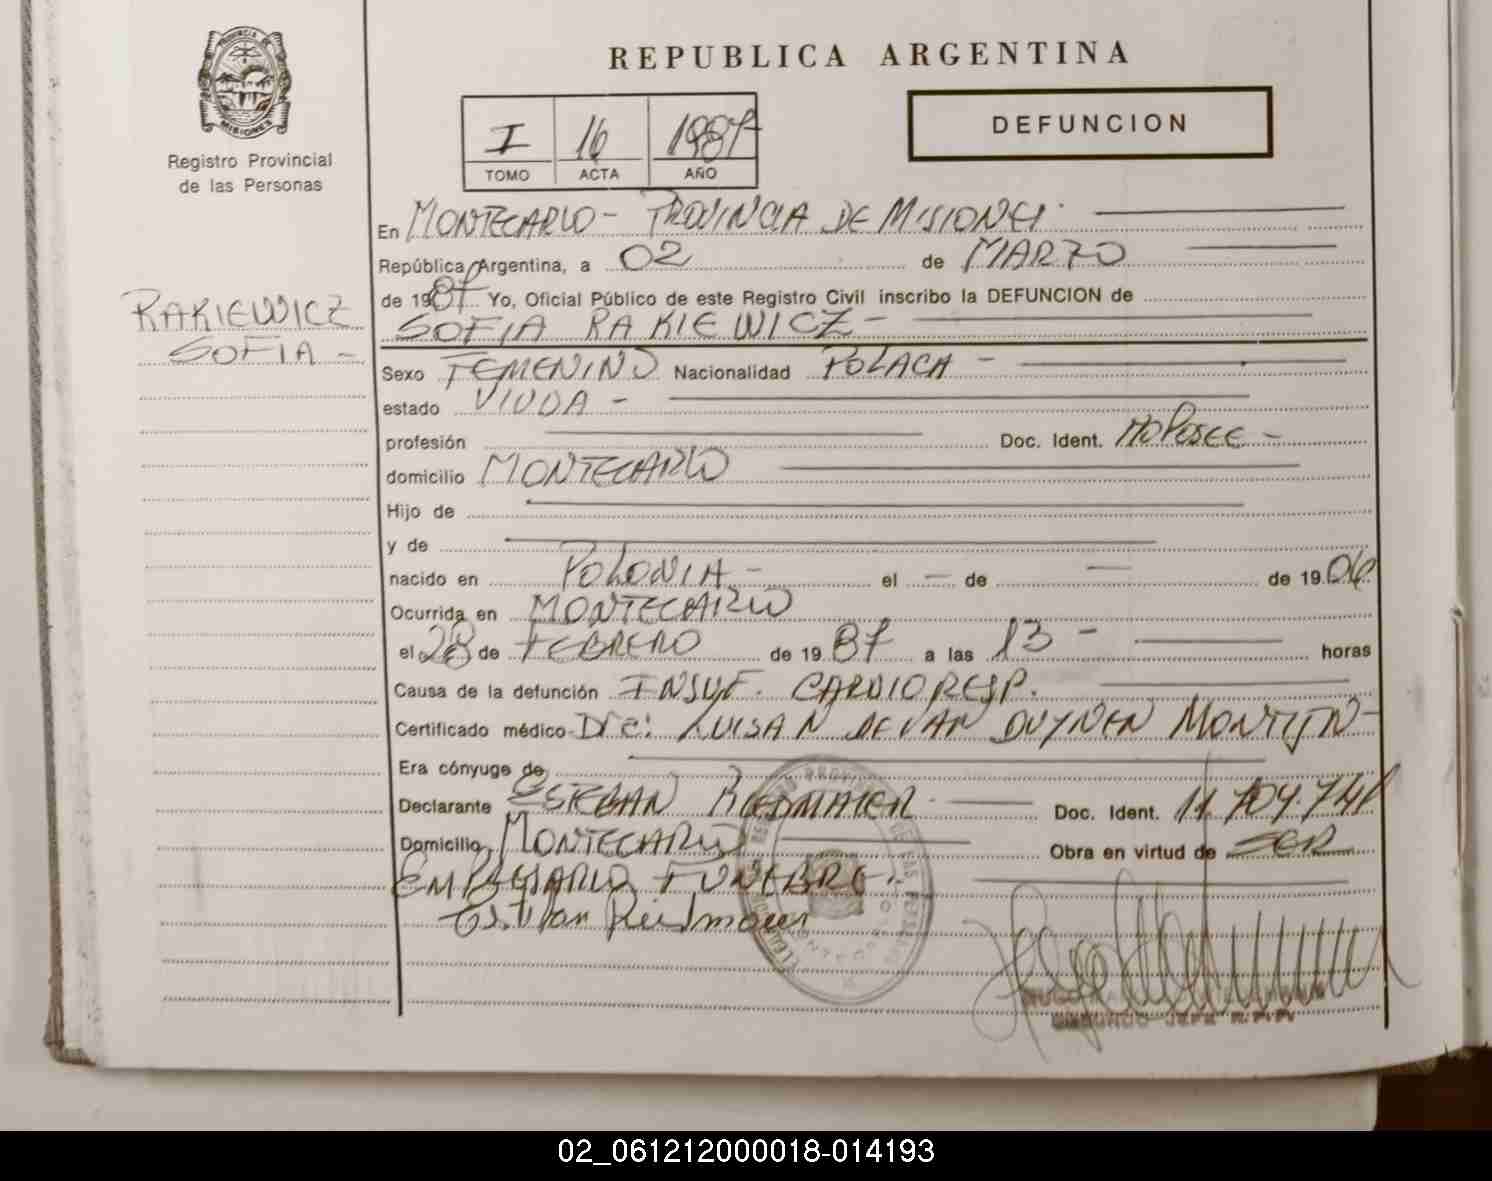 PROVINCIA DE
MISIONES
Registro Provincial
de las Personas
RAKIEWICZ
SOFIA -
REPUBLICA ARGENTINA
I 16 1987
TOMO ACTA AÑO
DEFUNCION
En MONTECARLO - PROVINCIA DE MISIONES
República Argentina, a 02 de MARZO
de 1987 Yo, Oficial Público de este Registro Civil inscribo la DEFUNCION de
SOFIA RAKIEWICZ -
Sexo FEMENINO Nacionalidad POLACA -
estado VIUDA -
profesión Doc. Ident. NO POSEE -
domicilio MONTECARLO
Hijo de
y de
nacido en POLONIA - el - de - de 1906
Ocurrida en MONTECARLO
el 28 de FEBRERO de 1987 a las 13 - horas
Causa de la defunción INSUF. CARDIORESP.
Certificado médico LUISA N DE VAN DUYNEN MONTIJN -
Era cónyuge de
Declarante ESTEBAN RIEDMAIER Doc. Ident. 11.704.741
Domicilio MONTECARLO Obra en virtud de SER
EMPRESARIO FUNEBRE.
SEGUNDO JEFE R.P.P.
02_061212000018-014193